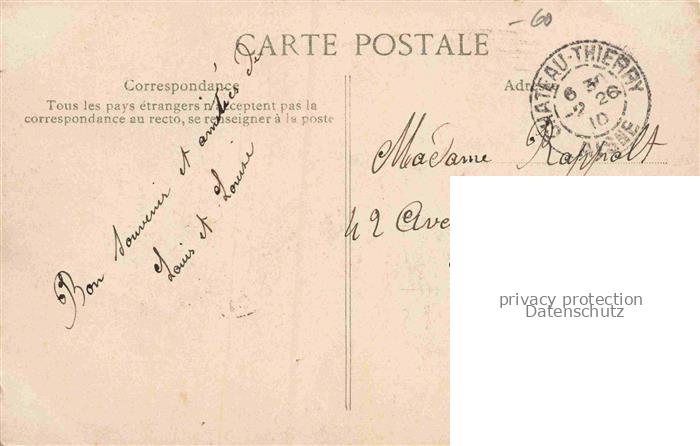 -60
CARTE POSTALE
Correspondance
Tous les pays étrangers n'acceptent pas la
correspondance au recto, se renseigner à la poste
Bon souvenir et amitiés de
Louis et Louise
CHATEAU-THIERRY
26
10
AISNE
Madame Rappolt
42 Ave
privacy protection
Datenschutz